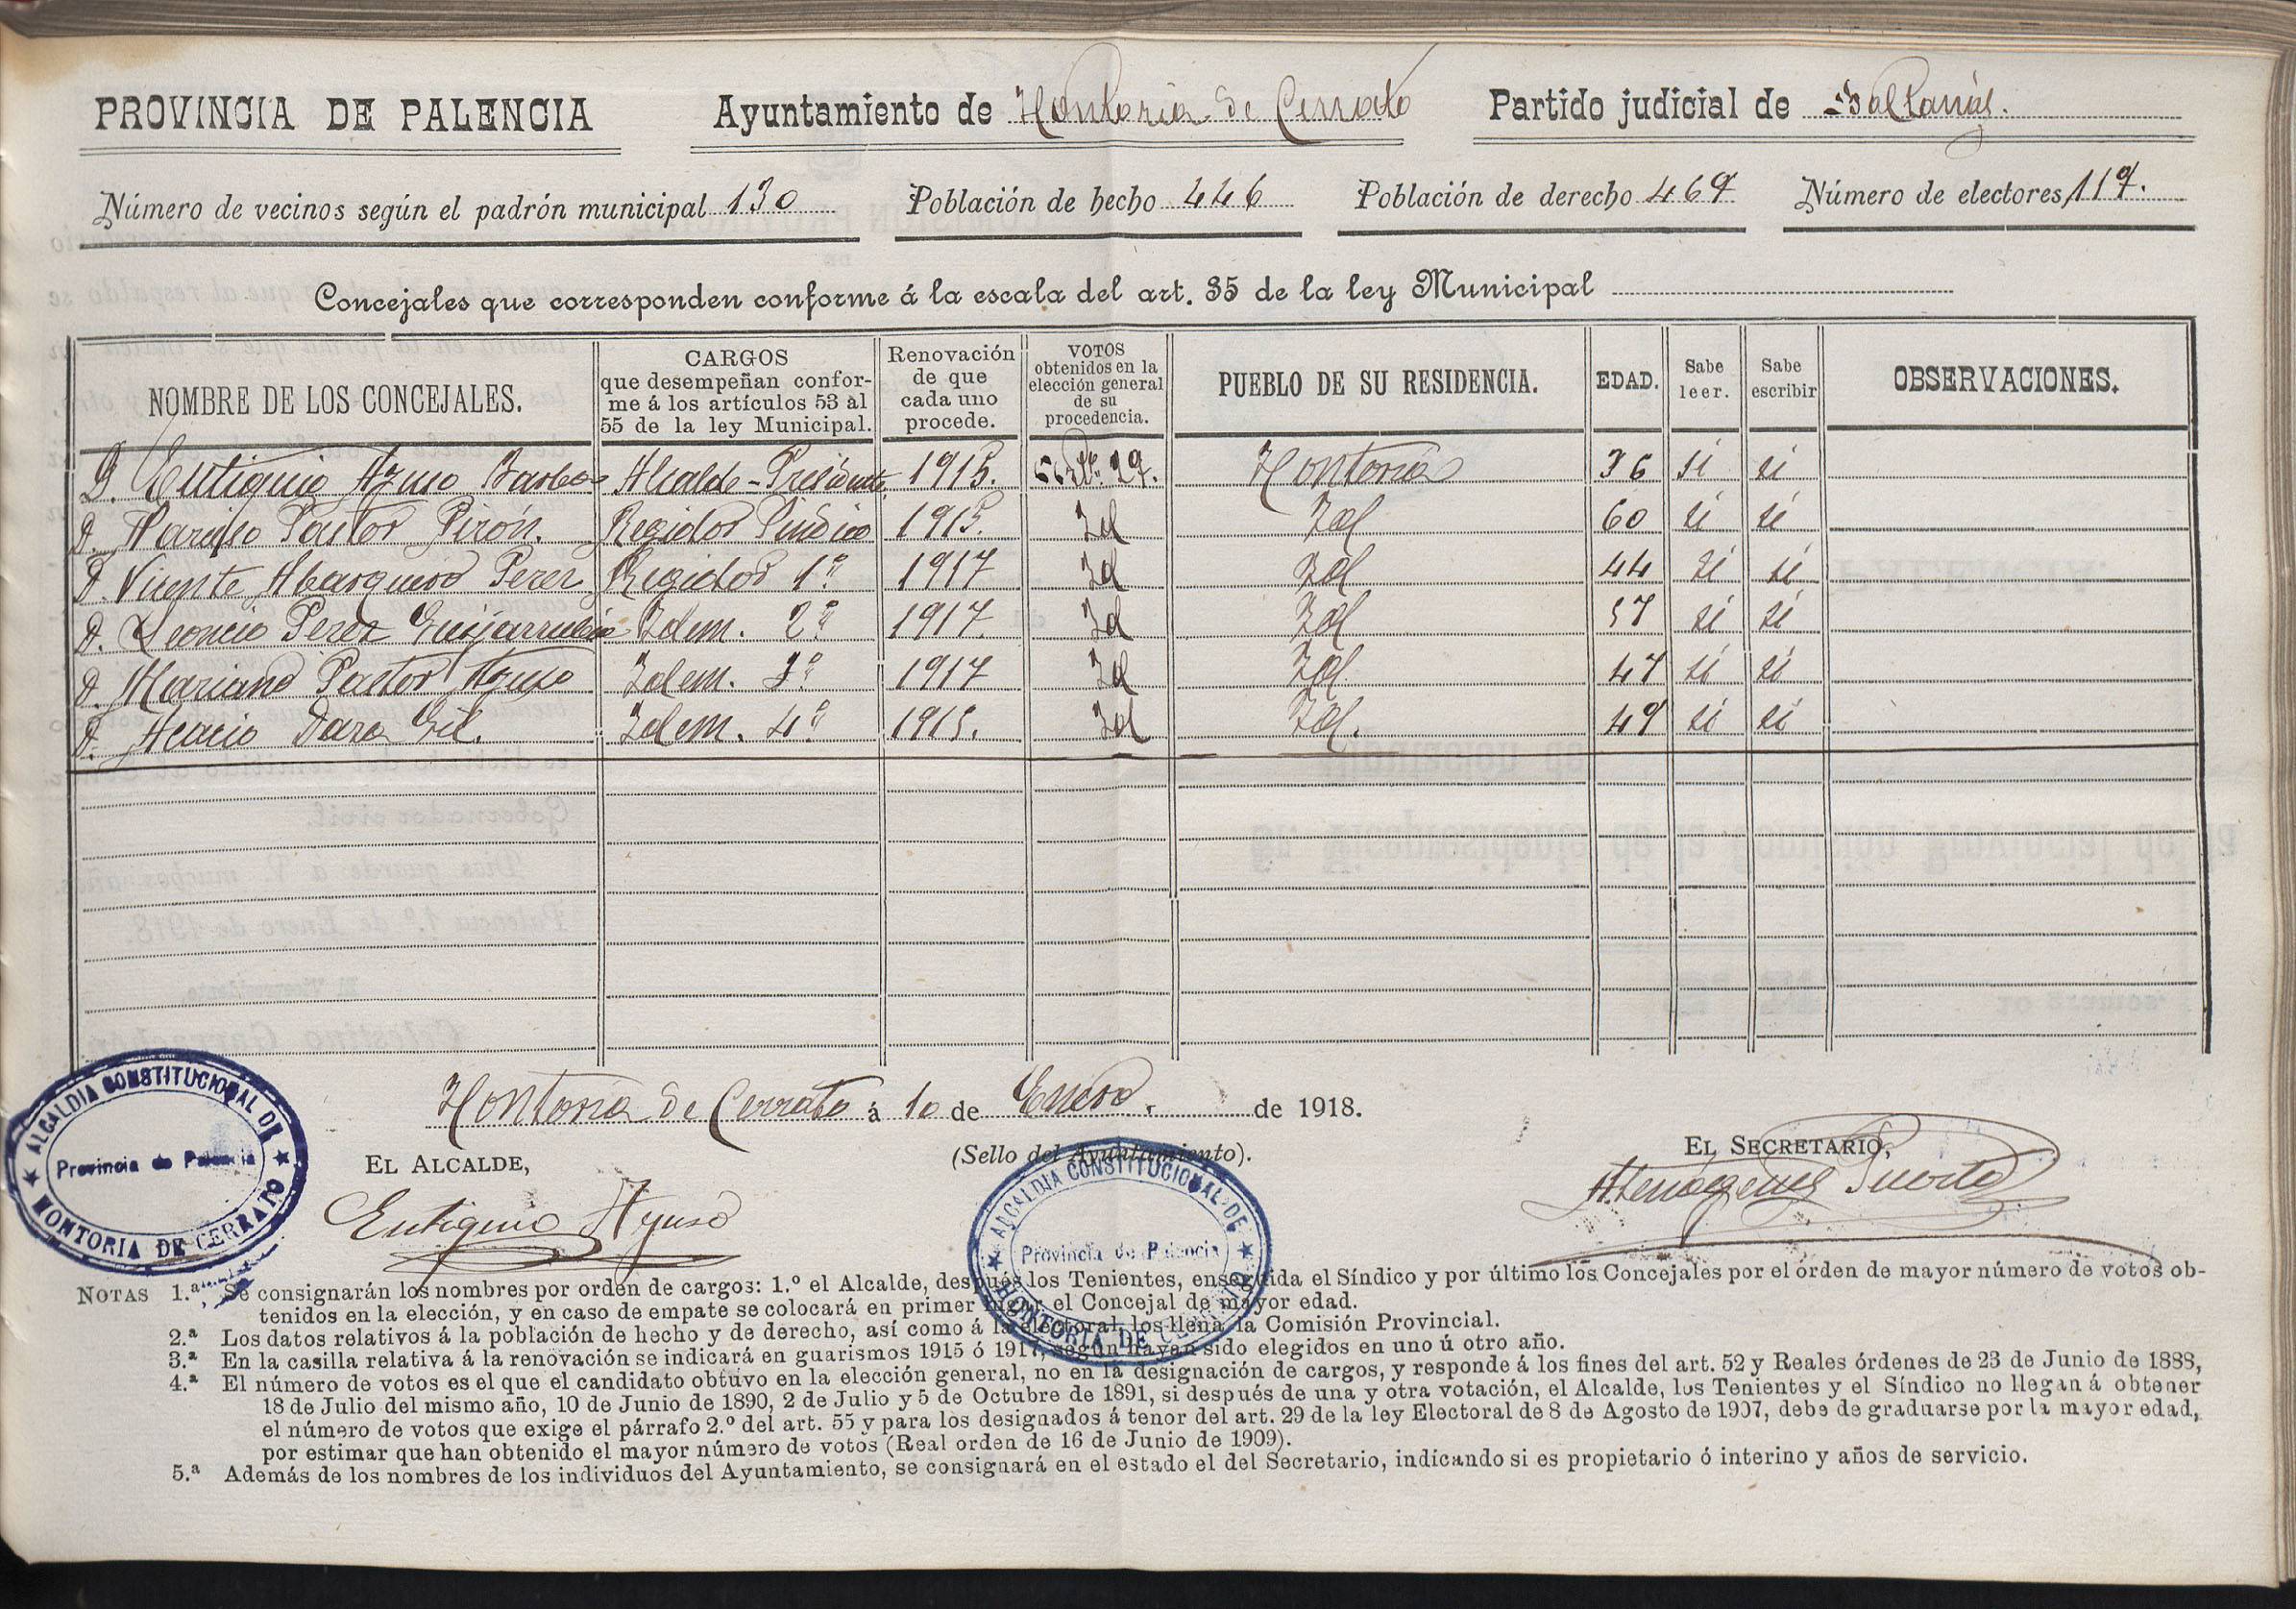 PROVINCIA DE PALENCIA Ayuntamiento de Hontoria de Cerrato Partido judicial de Baltanás.
Número de vecinos según el padrón municipal 130 Población de hecho 446 Población de derecho 469 Número de electores 119.
Concejales que corresponden conforme á la escala del art. 35 de la ley Municipal
NOMBRE DE LOS CONCEJALES.
CARGOS
que desempeñan confor-
me á los artículos 53 al
55 de la ley Municipal.
Renovación
de que
cada uno
procede.
VOTOS
obtenidos en la
elección general
de su
procedencia.
PUEBLO DE SU RESIDENCIA.
EDAD.
Sabe
leer.
Sabe
escribir
OBSERVACIONES.
D. Eutiquio Ayuso Alcalde-Presidente 1915. 29. Hontoria 36 si si
D. Pastor Regidor Síndico 1915. Id Id 60 si si
D. Vicente Abarquero Perez Regidor 1º 1917 Id Id 44 si si
D. Leoncio Perez Guijarrubia Idem. 2º 1917. Id Id 57 si si
D. Mariano Pastor Ayuso Idem. 3º 1917 Id Id 47 si si
D. Acacio Gil. Idem. 4º 1915. Id Id. 49 si si
Hontoria de Cerrato á 10 de Enero. de 1918.
(Sello del Ayuntamiento).
EL ALCALDE,
EL SECRETARIO,
Eutiquio Ayuso
Atenógenes Puerta
ALCALDIA CONSTITUCIONAL DE
Provincia de Palencia
HONTORIA DE CERRATO
ALCALDIA CONSTITUCIONAL DE
Provincia de Palencia
HONTORIA DE CERRATO
NOTAS 1.ª Se consignarán los nombres por orden de cargos: 1.º el Alcalde, después los Tenientes, enseguida el Síndico y por último los Concejales por el órden de mayor número de votos ob-
tenidos en la elección, y en caso de empate se colocará en primer lugar el Concejal de mayor edad.
2.ª Los datos relativos á la población de hecho y de derecho, así como á la electoral, los llena la Comisión Provincial.
3.ª En la casilla relativa á la renovación se indicará en guarismos 1915 ó 1917, según hayan sido elegidos en uno ú otro año.
4.ª El número de votos es el que el candidato obtuvo en la elección general, no en la designación de cargos, y responde á los fines del art. 52 y Reales órdenes de 23 de Junio de 1888,
18 de Julio del mismo año, 10 de Junio de 1890, 2 de Julio y 5 de Octubre de 1891, si después de una y otra votación, el Alcalde, los Tenientes y el Síndico no llegan á obtener
el número de votos que exige el párrafo 2.º del art. 55 y para los designados á tenor del art. 29 de la ley Electoral de 8 de Agosto de 1907, debe de graduarse por la mayor edad,
por estimar que han obtenido el mayor número de votos (Real orden de 16 de Junio de 1909).
5.ª Además de los nombres de los individuos del Ayuntamiento, se consignará en el estado el del Secretario, indicando si es propietario ó interino y años de servicio.